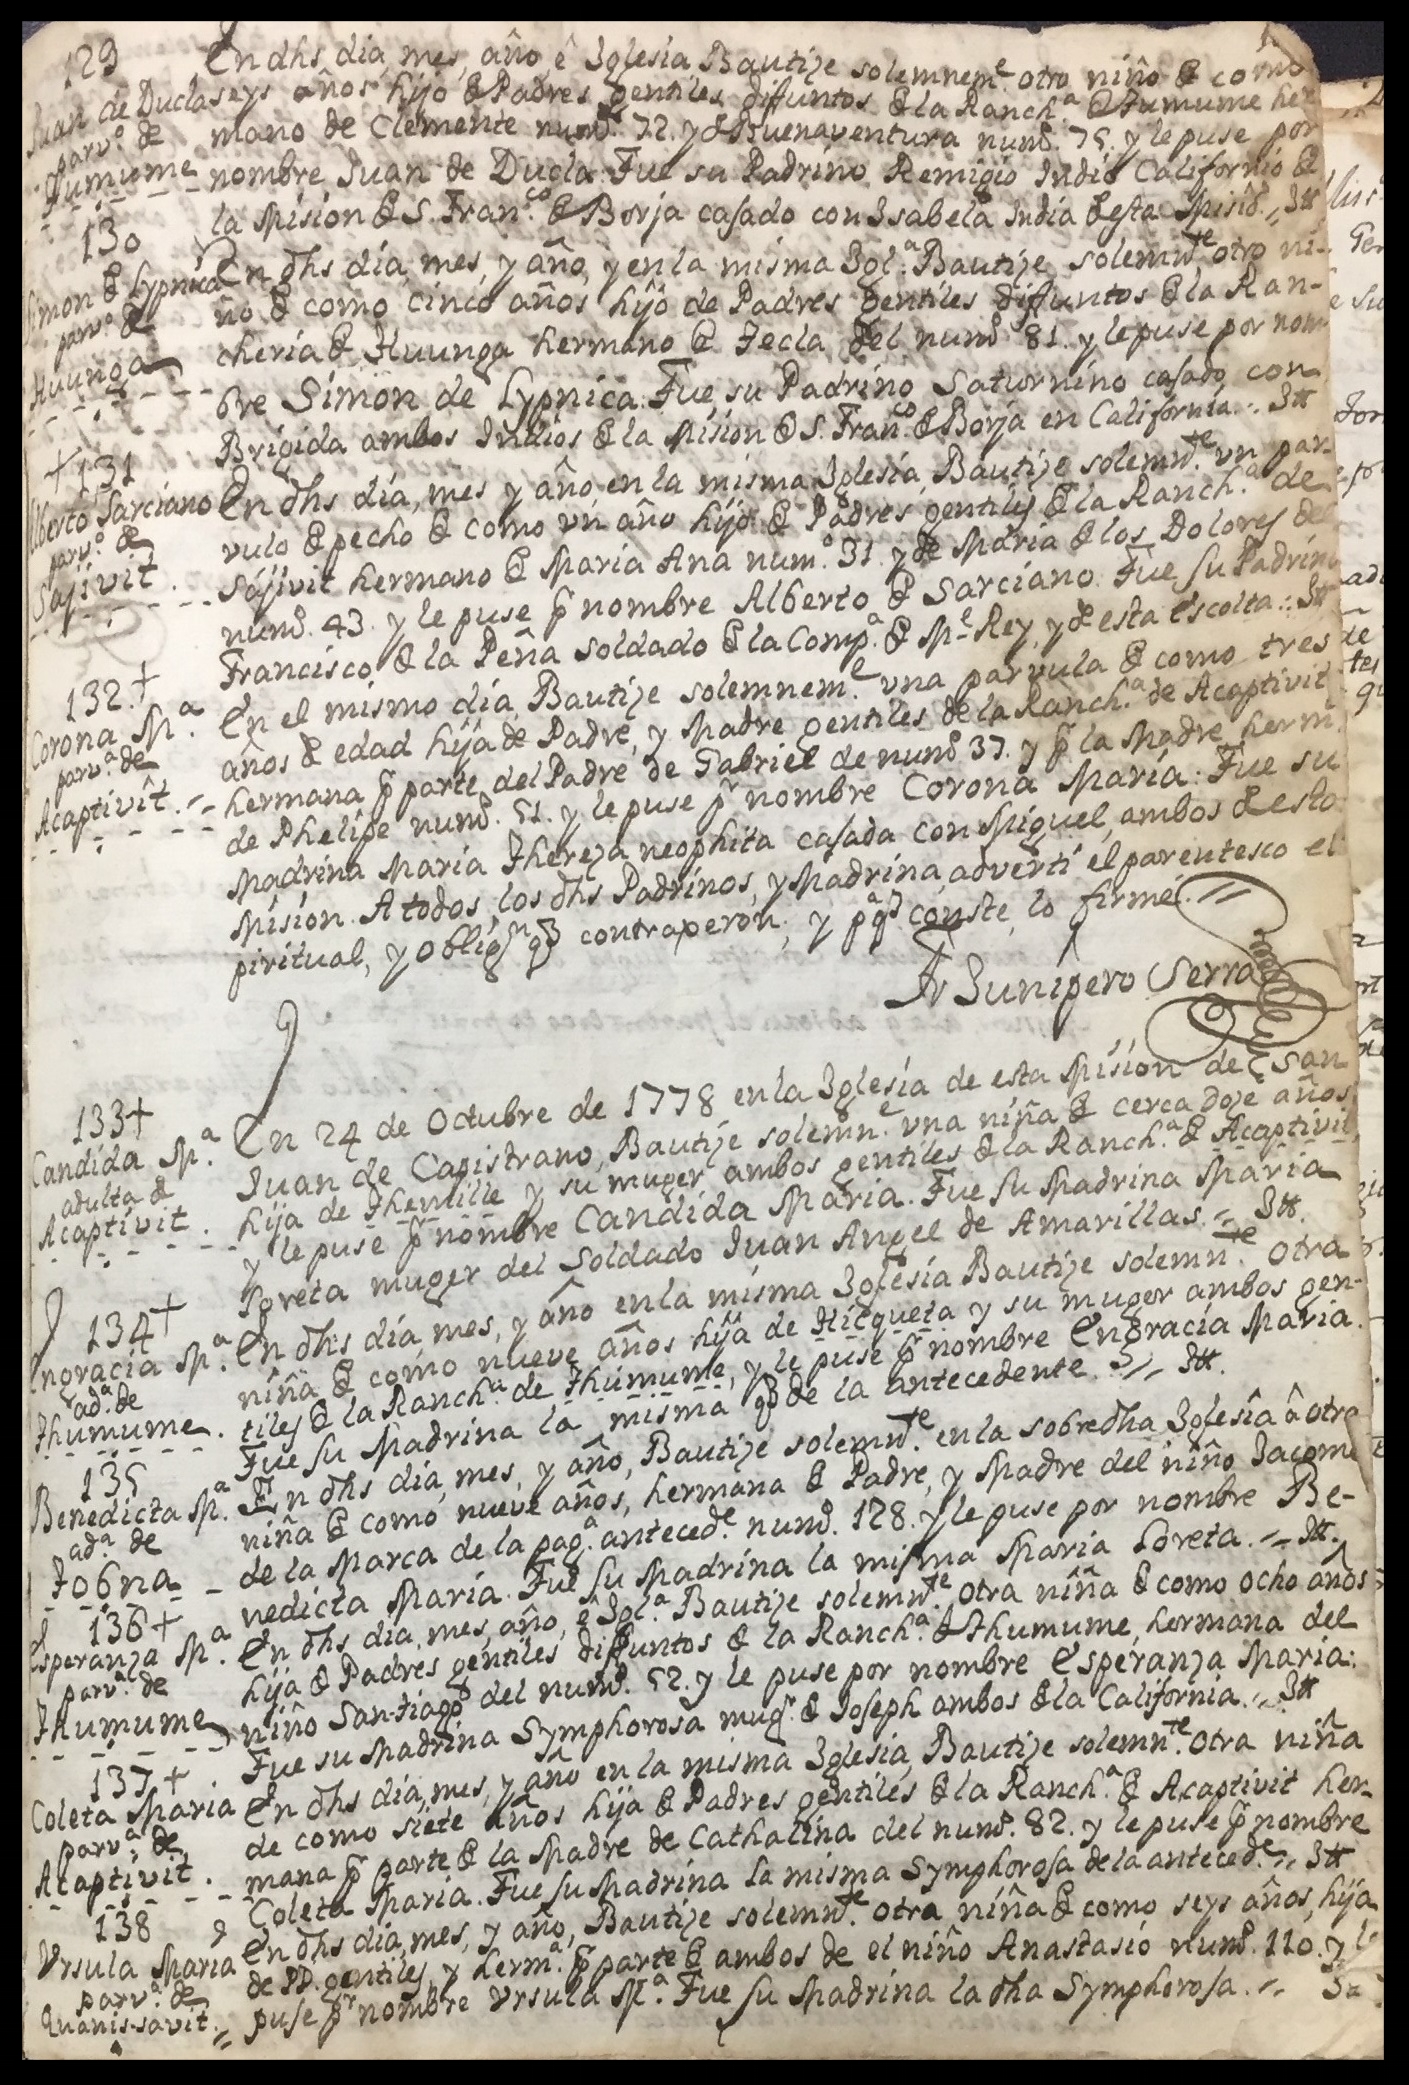 129
Juan de Ducla
parv.º de
Tumume
En dhs dia, mes, año, ê Iglesia Bautize solemnem.e otro niño de como
seys años hijo de Padres gentiles difuntos de la Ranch.a de Tumume her
mano de Clemente num.º 72. y de Buenaventura num.º 75. y le puse por
nombre Juan de Ducla: Fue su Padrino Remigio Indio Californio de
la Mision de S. Fran.co de Borja casado con Isabela India de esta Mision.
130
Simon de Lypnica
parv.º de
Huunga
En dhs dia, mes, y año, y en la misma Igl.a Bautize solemn.te otro ni-
ño de como cinco años hijo de Padres gentiles difuntos de la Ran-
cheria de Huunga hermano de Tecla del num.º 81. y le puse por nom
bre Simon de Lypnica: Fue su Padrino Saturnino casado con
Brigida ambos Indios de la Mision de S. Fran.co de Borja en California.
+131
Alberto Sarciano
parv.º de
Sajivit.
En dhs dia, mes, y año, en la misma Iglesia, Bautize solemn.te vn par-
vulo de pecho de como vn año hijo de Padres gentiles de la Ranch.a de
Sajivit hermano de Maria Ana num.º 31. y de Maria de los Dolores del
num.º 43. y le puse pr nombre Alberto de Sarciano. Fue su Padrino
Francisco de la Peña soldado de la Comp.a de M.e Rey, y de esta Escolta.
132+
Corona M.a
parv.a de
Acaptivit.
En el mismo dia Bautize solemnem.e vna parvula de como tres
años de edad hija de Padre, y Madre gentiles de la Ranch.a de Acaptivit
hermana pr parte del Padre de Gabriel de num.º 37. y pr la Madre herm.
de Phelipe num.º 51. y le puse pr nombre Corona Maria: Fue su
Madrina Maria Thereza neophita casada con Miguel, ambos de esta
Mision. A todos los dhs Padrinos, y Madrina adverti el parentesco es
piritual, y oblig.n q contraxeron; y p.a q conste, lo firmé.
Fr Junipero Serra
133+
Candida M.a
adulta de
Acaptivit.
En 24 de Octubre de 1778 en la Iglesia de esta Mision de San
Juan de Capistrano, Bautize solemn.e vna niña de cerca doze años
hija de Themilile y su muger ambos gentiles de la Ranch.a de Acaptivit
y le puse pr nombre Candida Maria. Fue su Madrina Maria
Loreta muger del Soldado Juan Angel de Amarillas.
134+
Engracia M.a
ad.a de
Thumume.
En dhs dia, mes, y año en la misma Iglesia Bautize solemn.te otra
niña de como nueve años hija de Hicqueta y su muger ambos gen-
tiles de la Ranch.a de Thumume, y le puse pr nombre Engracia Maria.
Fue su Madrina la misma q de la antecedente.
135
Benedicta M.a
ad.a de
Tobna
En dhs dia, mes, y año, Bautize solemn.te en la sobredha Iglesia â otra
niña de como nueve años, hermana de Padre, y Madre del niño Jacome
de la Marca de la pag.a anteced.e num.º 128. y le puse por nombre Be-
nedicta Maria. Fue su Madrina la misma Maria Loreta.
136+
Esperanza M.a
parv.a de
Thumume
En dhs dia, mes, año, ê Igl.a Bautize solemn.te otra niña de como ocho años
hija de Padres gentiles difuntos de la Ranch.a de Thumume, hermana del
niño Santiago del num.º 52. y le puse por nombre Esperanza Maria:
Fue su Madrina Symphorosa mug.r de Joseph ambos de la California.
137+
Coleta Maria
parv.a de
Acaptivit.
En dhs dia, mes, y año en la misma Iglesia, Bautize solemn.te otra niña
de como siete años hija de Padres gentiles de la Ranch.a de Acaptivit her-
mana pr parte de la Madre de Cathalina del num.º 82. y le puse pr nombre
Coleta Maria. Fue su Madrina la misma Symphorosa de la anteced.e
138
Vrsula Maria
parv.a de
Quanis-savit.
En dhs dia, mes, y año, Bautize solemn.te otra niña de como seys años, hija
de PP. gentiles, y herm.a pr parte de ambos de el niño Anastasio num.º 110. y le
puse pr nombre Vrsula M.a Fue su Madrina la dha Symphorosa.